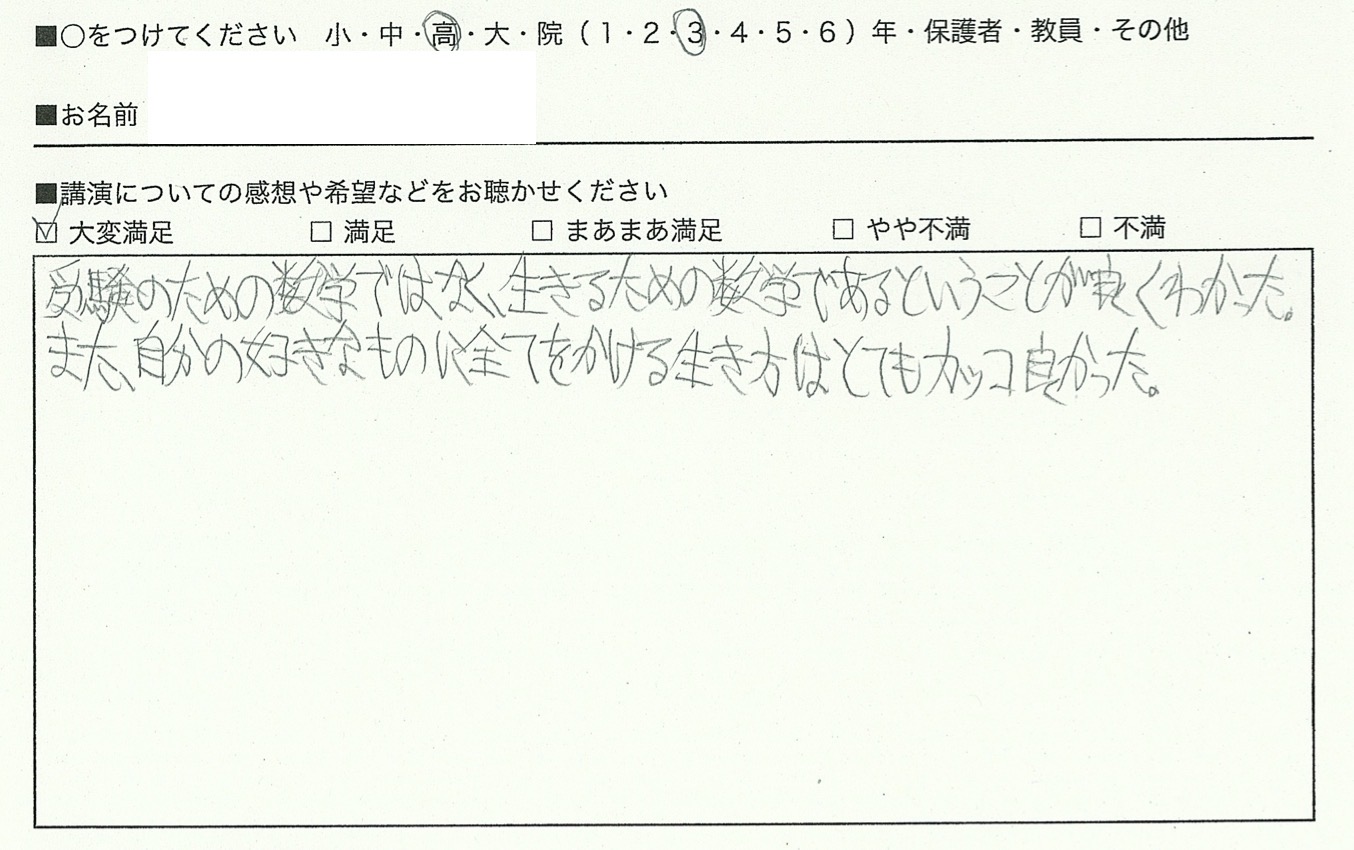 ■○をつけてください 小・中・高・大・院(1・2・3・4・5・6)年・保護者・教員・その他
■お名前
■講演についての感想や希望などをお聴かせください
☑ 大変満足 □ 満足 □ まあまあ満足 □ やや不満 □ 不満
受験のための数学ではなく、生きるための数学であるということが良くわかった。
また、自分の好きなものに全てをかける生き方はとてもカッコ良かった。